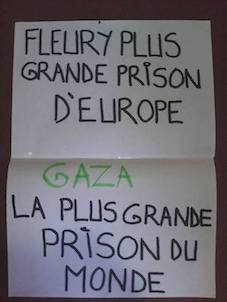 FLEURY PLUS
GRANDE PRISON
D'EUROPE
GAZA
LA PLUS GRANDE
PRISON DU
MONDE